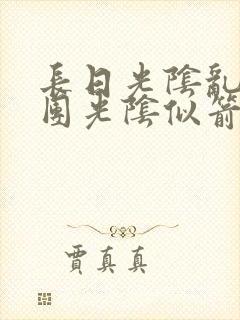 長日光陰亂
團光陰似箭
賈真真